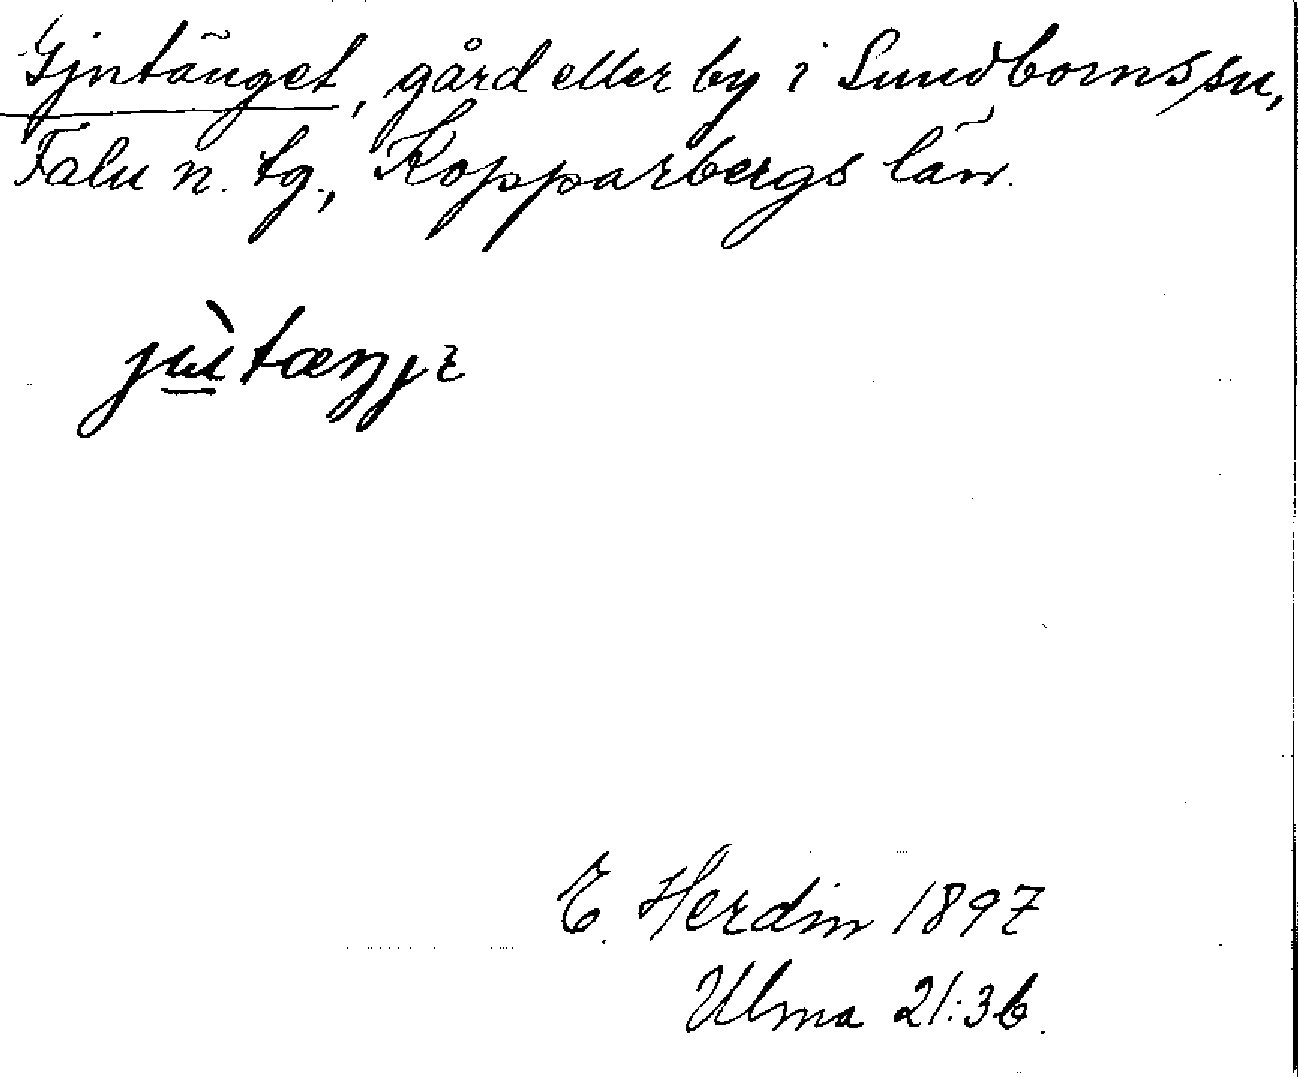 Gjntänget, gård eller by i Sundborns sn,
Falu n. tg., Kopparbergs län.
E. Herdin 1897
Ulma 21:3b.